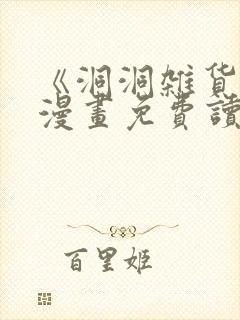 《洞洞雑貨
漫畫免費讀
百里姬